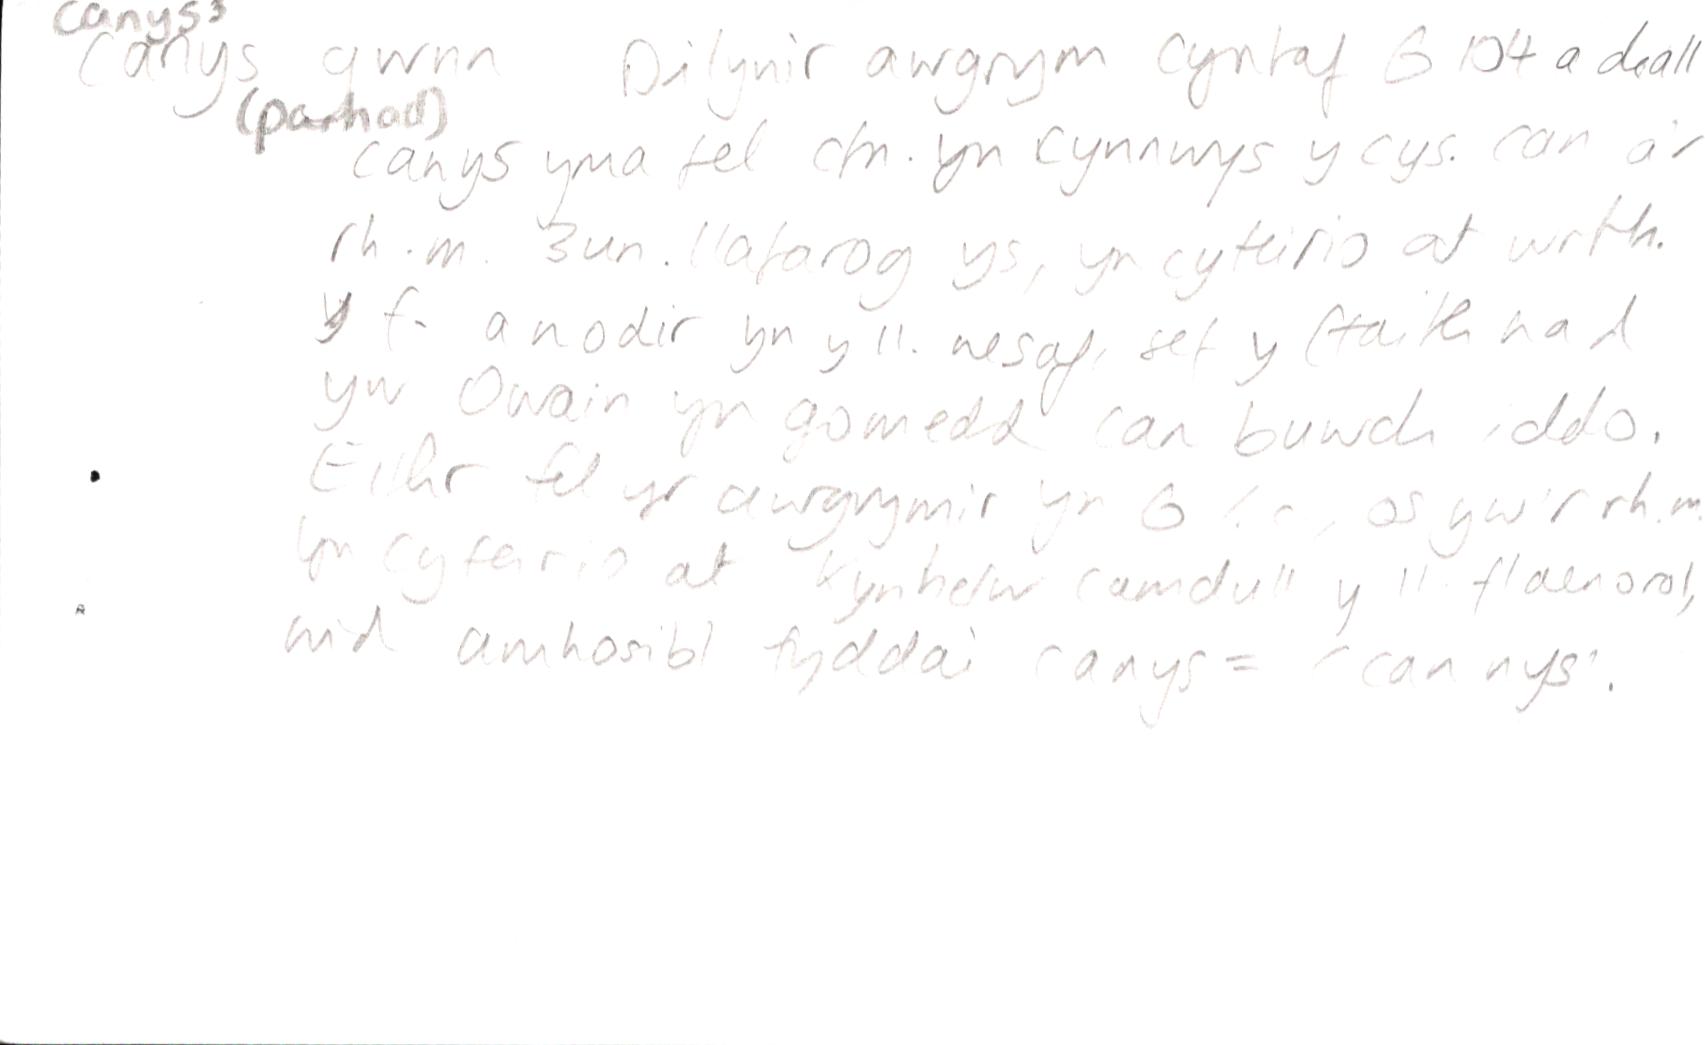 canys³
canys gwnn Dilynir awgrym cyntaf G 104 a deall
(parhad)
canys yma fel cfn. yn cynnwys y cys. can a'r
rh.m. 3 un. llafarog ys, yn cyfeirio at wrth.
y f. a nodir yn y ll. nesaf, sef y ffaith nad
yw Owain yn gomedd can buwch iddo.
Eithr fel yr awgrymir yn G l.c., os yw'r rh.m.
yn cyfeirio at kynhelw camdull y ll. flaenorol,
nid amhosibl fyddai canys = 'can nys'.